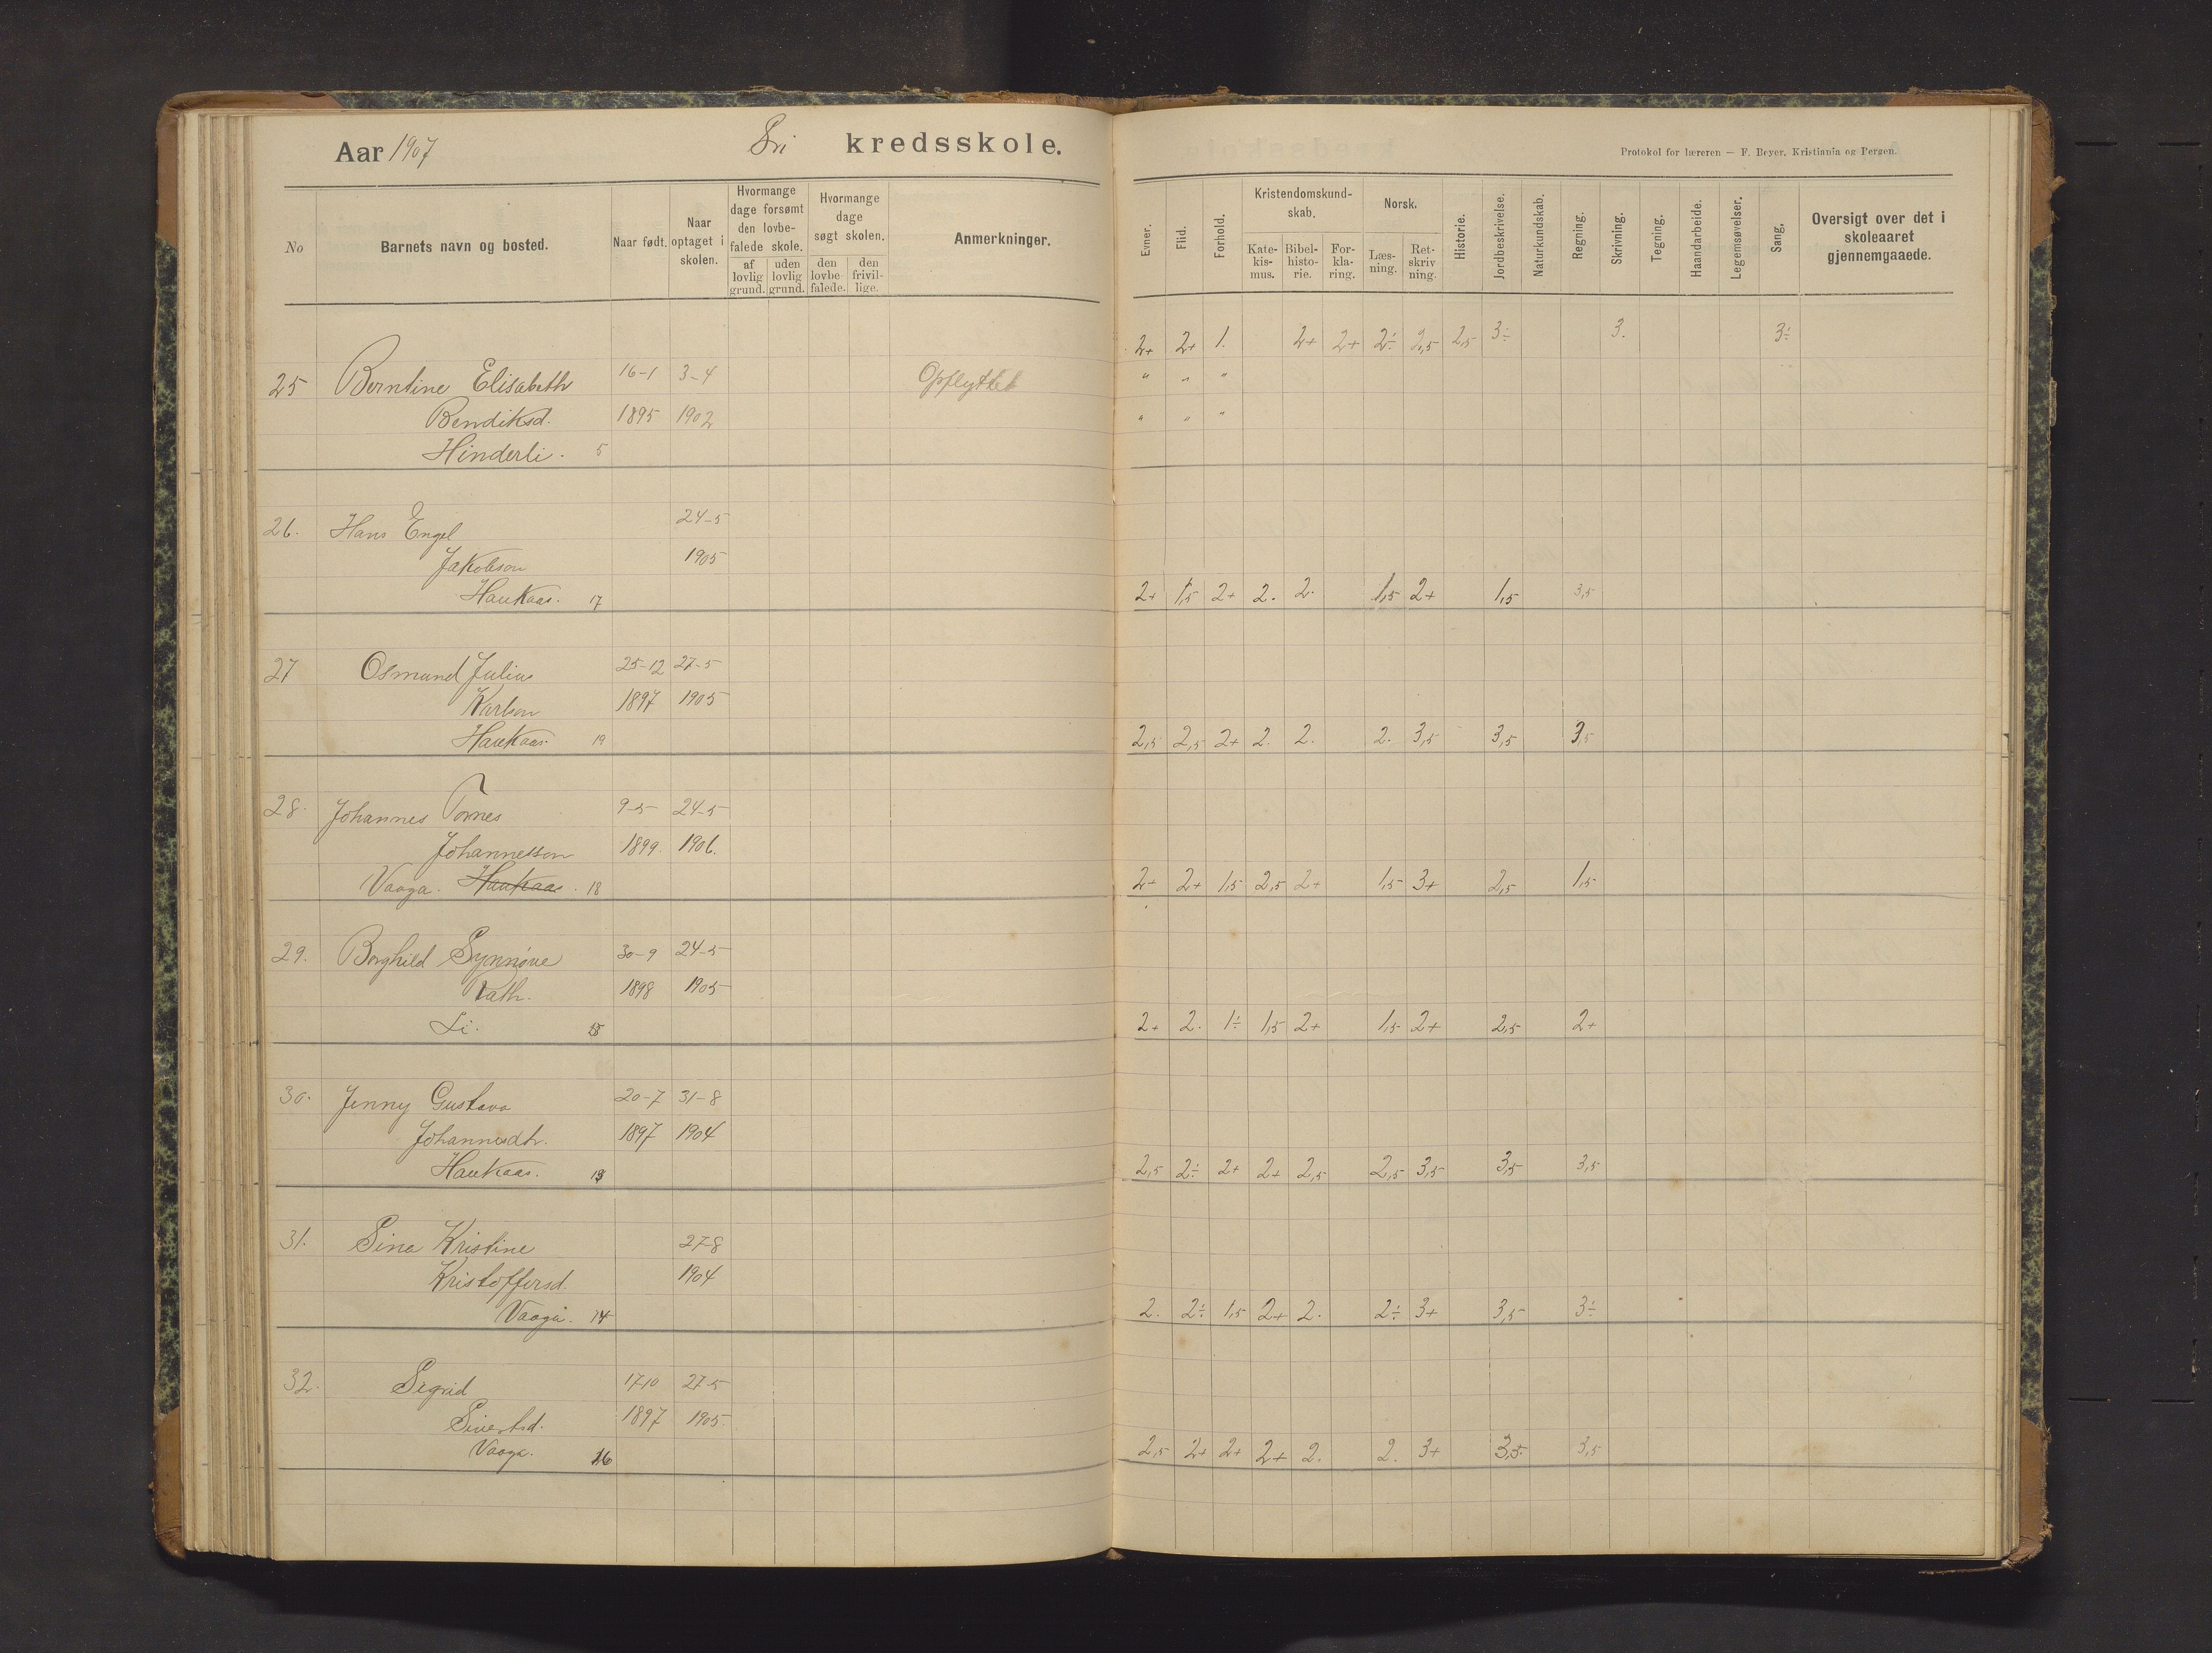 Aar 1907 Sri kredsskole.
Protokol for læreren — F. Beyer, Kristiania og Bergen.
No Barnets navn og bosted. Naar født. Naar optaget i skolen. Hvormange dage forsømt den lovbefalede skole. af lovlig grund. uden lovlig grund. Hvormange dage søgt skolen. den lovbefalede. den frivillige. Anmerkninger.
Evner. Flid. Forhold. Kristendomskundskab. Katekismus. Bibelhistorie. Forklaring. Norsk. Læsning. Retskrivning. Historie. Jordbeskrivelse. Naturkundskab. Regning. Skrivning. Tegning. Haandarbeide. Legemsøvelser. Sang. Oversigt over det i skoleaaret gjennemgaaede.
2+ 2+ 1. 2+ 2+ 2÷ 2,5 2,5 3÷ 3. 3÷
25 Berntine Elisabeth 16-1 3-4 Opflyttet " " "
Bendiksd. 1895 1902 " " "
Hinderli. 5
26. Hans Engel 24-5
Jakobson 1905
Haukaas. 17 2+ 1,5 2+ 2. 2. 1,5 2+ 1,5 3,5
27 Osmund Julius 25-12 27-5
Karlson 1897 1905
Haukaas. 19 2,5 2,5 2+ 2. 2. 2. 3,5 3,5 3,5
28. Johannes Tornes 9-5 24-5
Johannesson 1899. 1906.
Vaaga. Haukaas. 18 2+ 2+ 1,5 2,5 2+ 1,5 3+ 2,5 1,5
29. Borghild Synnøve 30-9 24-5
Vath. 1898 1905
Li. 2+ 2. 1÷ 1,5 2+ 1,5 2+ 2,5 2+
30. Jenny Gustava 20-7 31-8
Johannesdtr. 1897 1904
Haukaas. 2,5 2÷ 2+ 2+ 2,5 2,5 3,5 3,5 3,5
31. Sina Kristine 27-8
Kristoffersd. 1904
Vaaga. 14 2. 2÷ 1,5 2+ 2. 2÷ 3+ 3,5 3÷
32. Sigrid 17-10 27-5
Sivertsd. 1897 1905.
Vaaga. 16 2,5 2+ 2+ 2+ 2. 2. 3+ 3,5 3,5